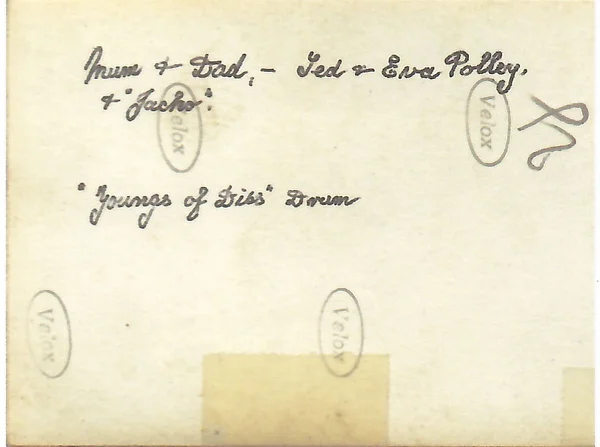 Mum & Dad, – Ted & Eva Polley.
& "Jacko".
"Youngs of Diss" Dram
Velox
Velox
Velox
Velox